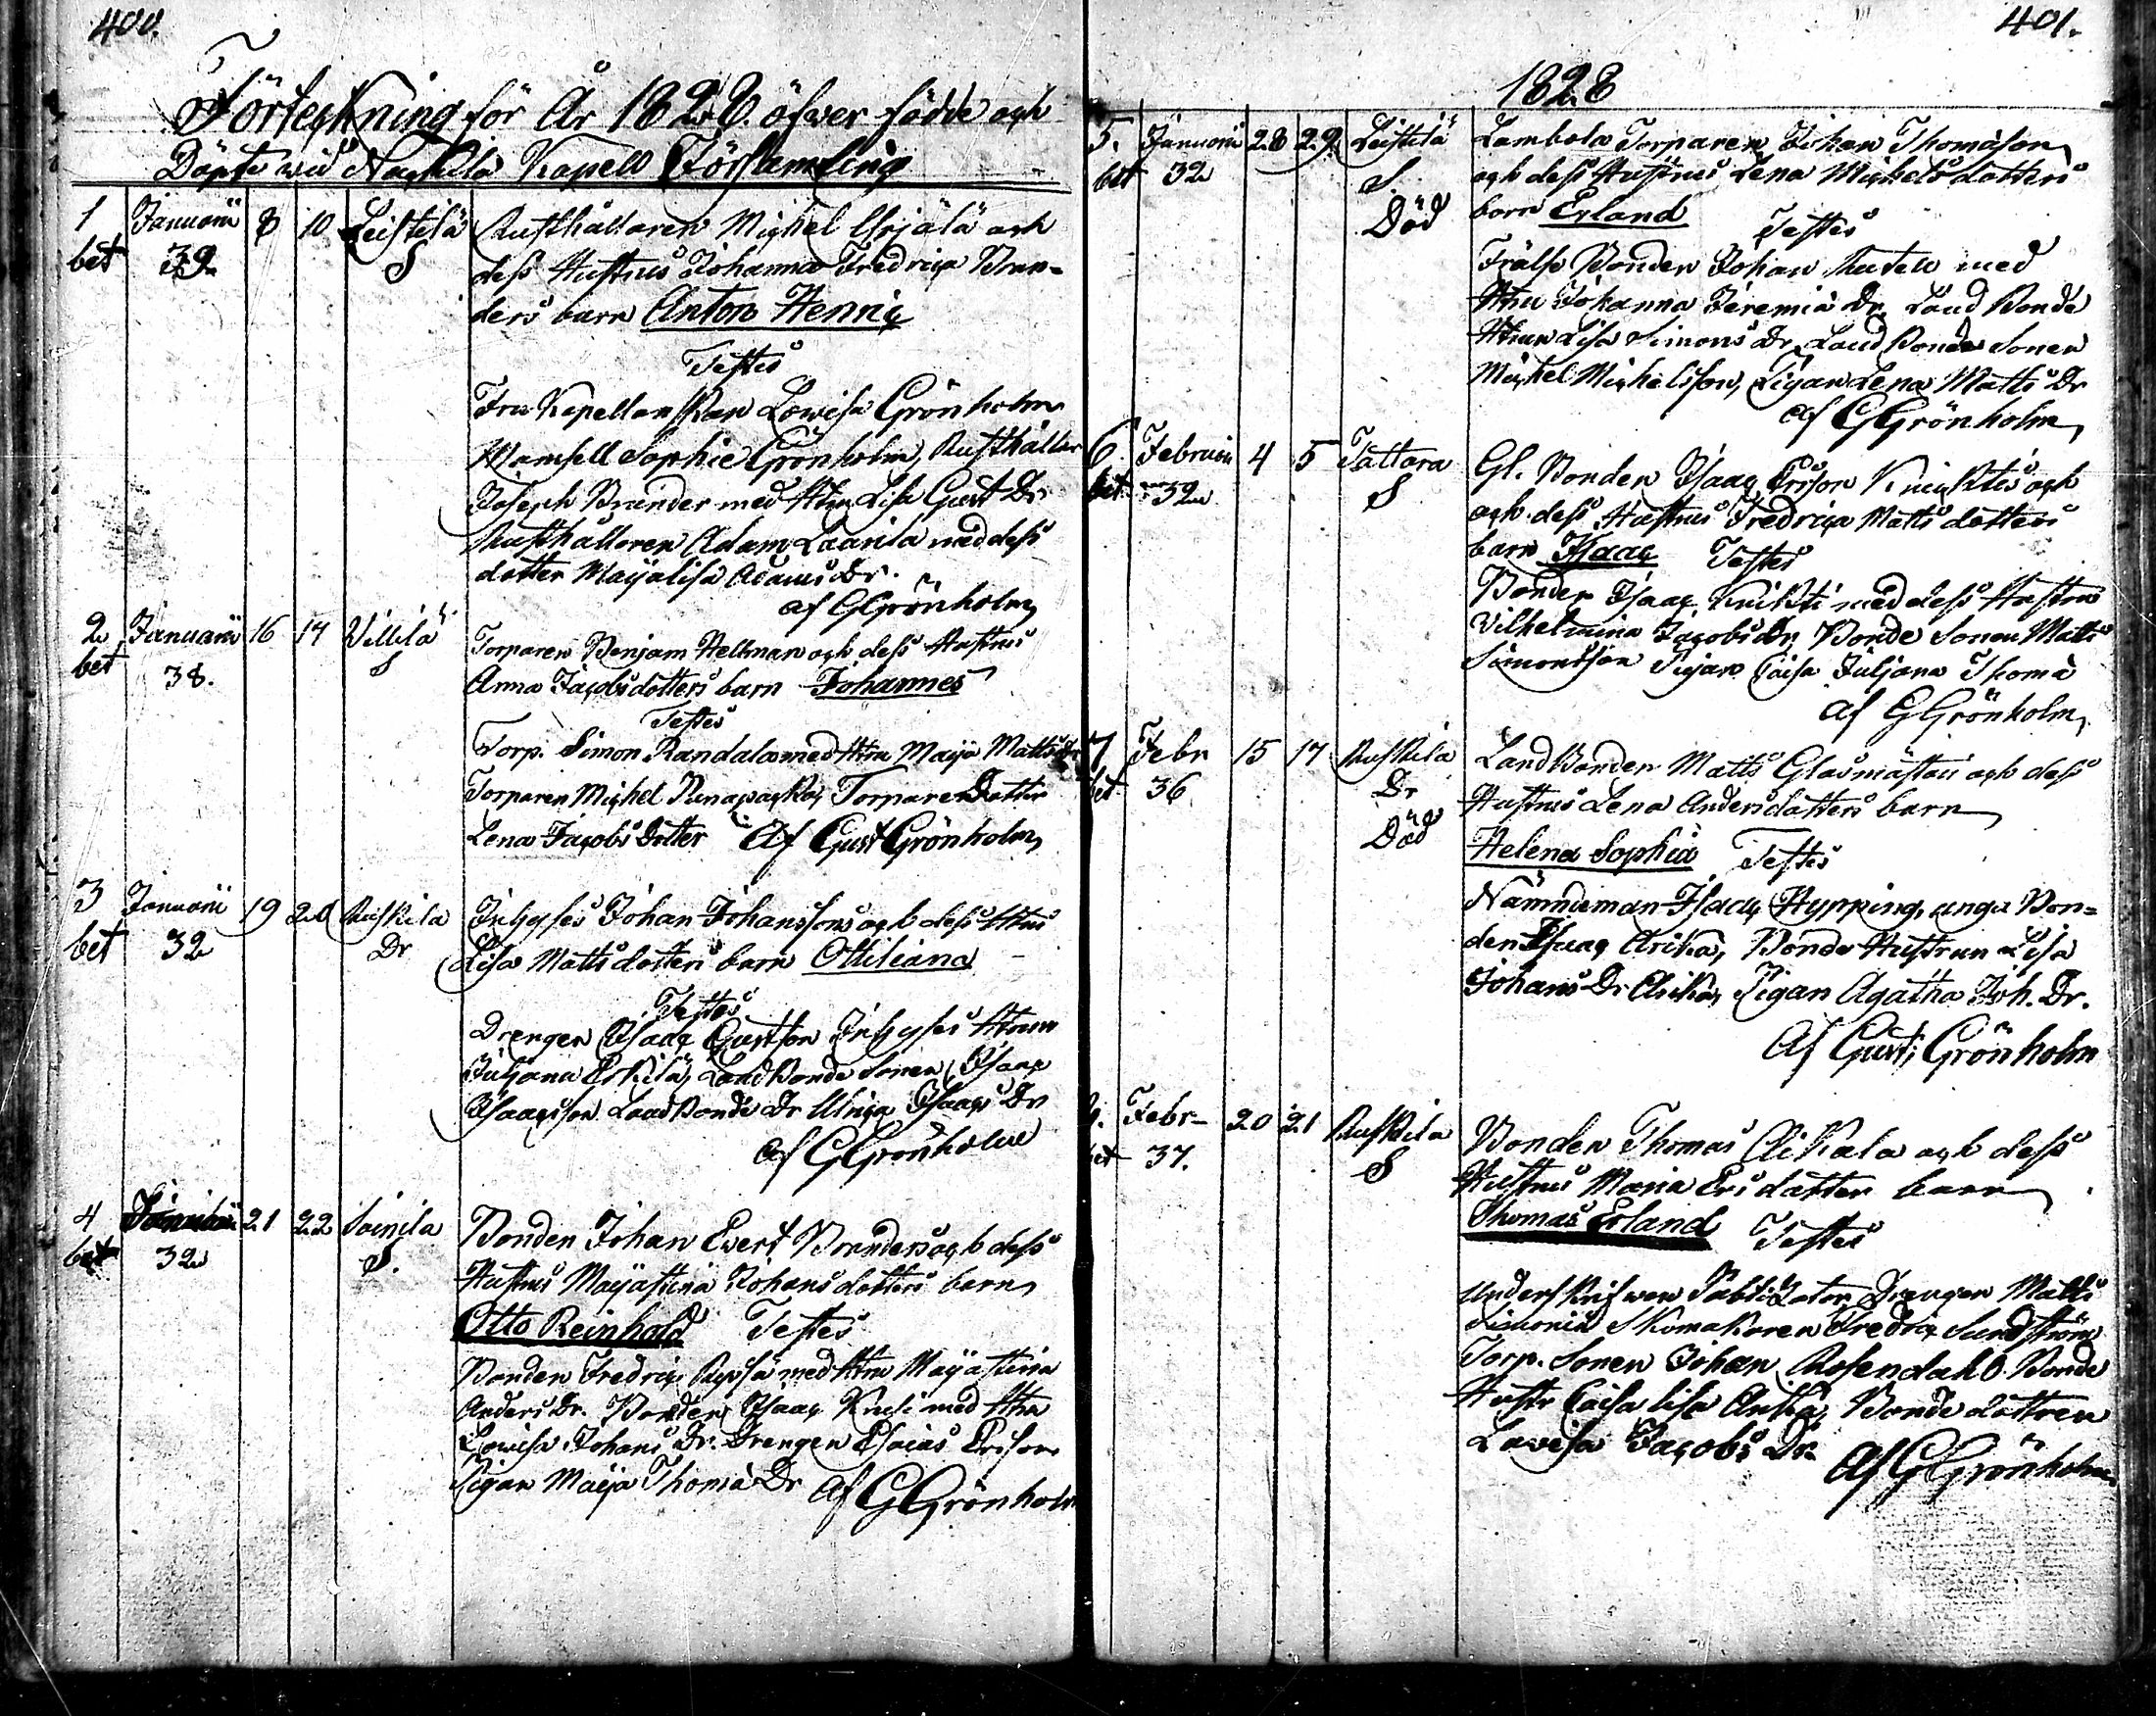 400.
Förteckning för År 1828. öfwer födde och
Döpte wid Nackila Kapell Församling
1 Januarii 8 10 Leistilä Rusthållaren Michel Yrjälä och
bet 32 S dess Hustrus Johanna Fredrica Bran-
ders barn Anton Henric
Testes
Fru Kapellanskan Lowisa Grönholm
Mamsell Sophie Grönholm, Rusthållar
Joseph Brander med Htru Lisa Gust Dr
Rusthållaren Adam Laurila med dess
dotter Maijalisa Adams Dr.
af GGrönholm
2 Januarii 16 17 Villilä Torparen Benjam Hellman och dess Hustrus
bet 38. S Anna Jacobsdotters barn Johannes
Testes
Torp. Simon Randala med Htru Maija Matts Dr
Torparen Michel Torparedotter
Lena Jacobs Dotter Af Gust Grönholm
3 Januarii 19 20 Ruskila Inhyses Johan Johanssons och dess Htrus
bet 32 Dr Lisa Mattsdotters barn Ottiliana
Testes
Drengen Isaac Gustson Inhyses Htrun
Juljana Eskilä, Landbonde Sonen Isaac
Isaacsson Landbonde Dr Ulrica Isaacs Dr
af GGrönholm
4 Januarii 21 22 Soinila Bonden Johan Evert Branders och dess
bet 32 S. Hustrus Maijastina Johansdotters barn
Otto Reinhold Testes
Bonden Fredric med Htru Maijastina
Anders Dr. Bonden Isaac Krusi med Htru
Lowisa Johans Dr. Drengen Esaias Ericson
Pigan Maija Thoma Dr af GGrönholm
401.
1828
5. Januarii 28 29 Leistilä Lambola Torparen Johan Thomason
bet 32 S. och dess Hustrus Lena Michelsdotters
Död barn Erland Testes
Frälse Bonden Johan med
Htru Johanna Jeremiä Dr. Land Bonde
Htrun Lisa Simons Dr, Land Bonde Sonen
Michel Michelsson, Pigan Lena Matts Dr
af GGrönholm
6. Februarii 4 5 Tattara Gl. Bonden Isaac Ericson Knicktis och
bet 32 S och dess Hustrus Fredrica Mattsdotters
barn Isaac Testes
Bonden Isaac Knikti med dess Hustru
Vilhelmina Jacobs Dr, Bonde Sonen Matts
Simonsson Pigan Caisa Juljana Thoma
af GGrönholm
7 Febr 15 17 Ruskila LandBonden Matts Glasmästari och dess
bet 36 Dr Hustrus Lena Andersdotters barn
Död Helena Sophia Testes
Nämndeman Isaac Hypping, unga Bon-
den Isaac Arika, Bonde Hustrun Lisa
Johans Dr Arika, Pigan Agatha Joh. Dr.
Af Gust: Grönholm
8. Febr- 20 21 Ruskila Bonden Thomas Alikala och dess
bet 37. S Hustrus Maria Ersdotter barn
Thomas Erland Testes
Underskrifwen Drengen Matts
Skomakaren Fredric Sundström
Torp. Sonen Johan Rosendahl. Bonde
Hustr Caisa Lisa Bondedottren
Lovisa Jacobs Dr. Af GGrönholm